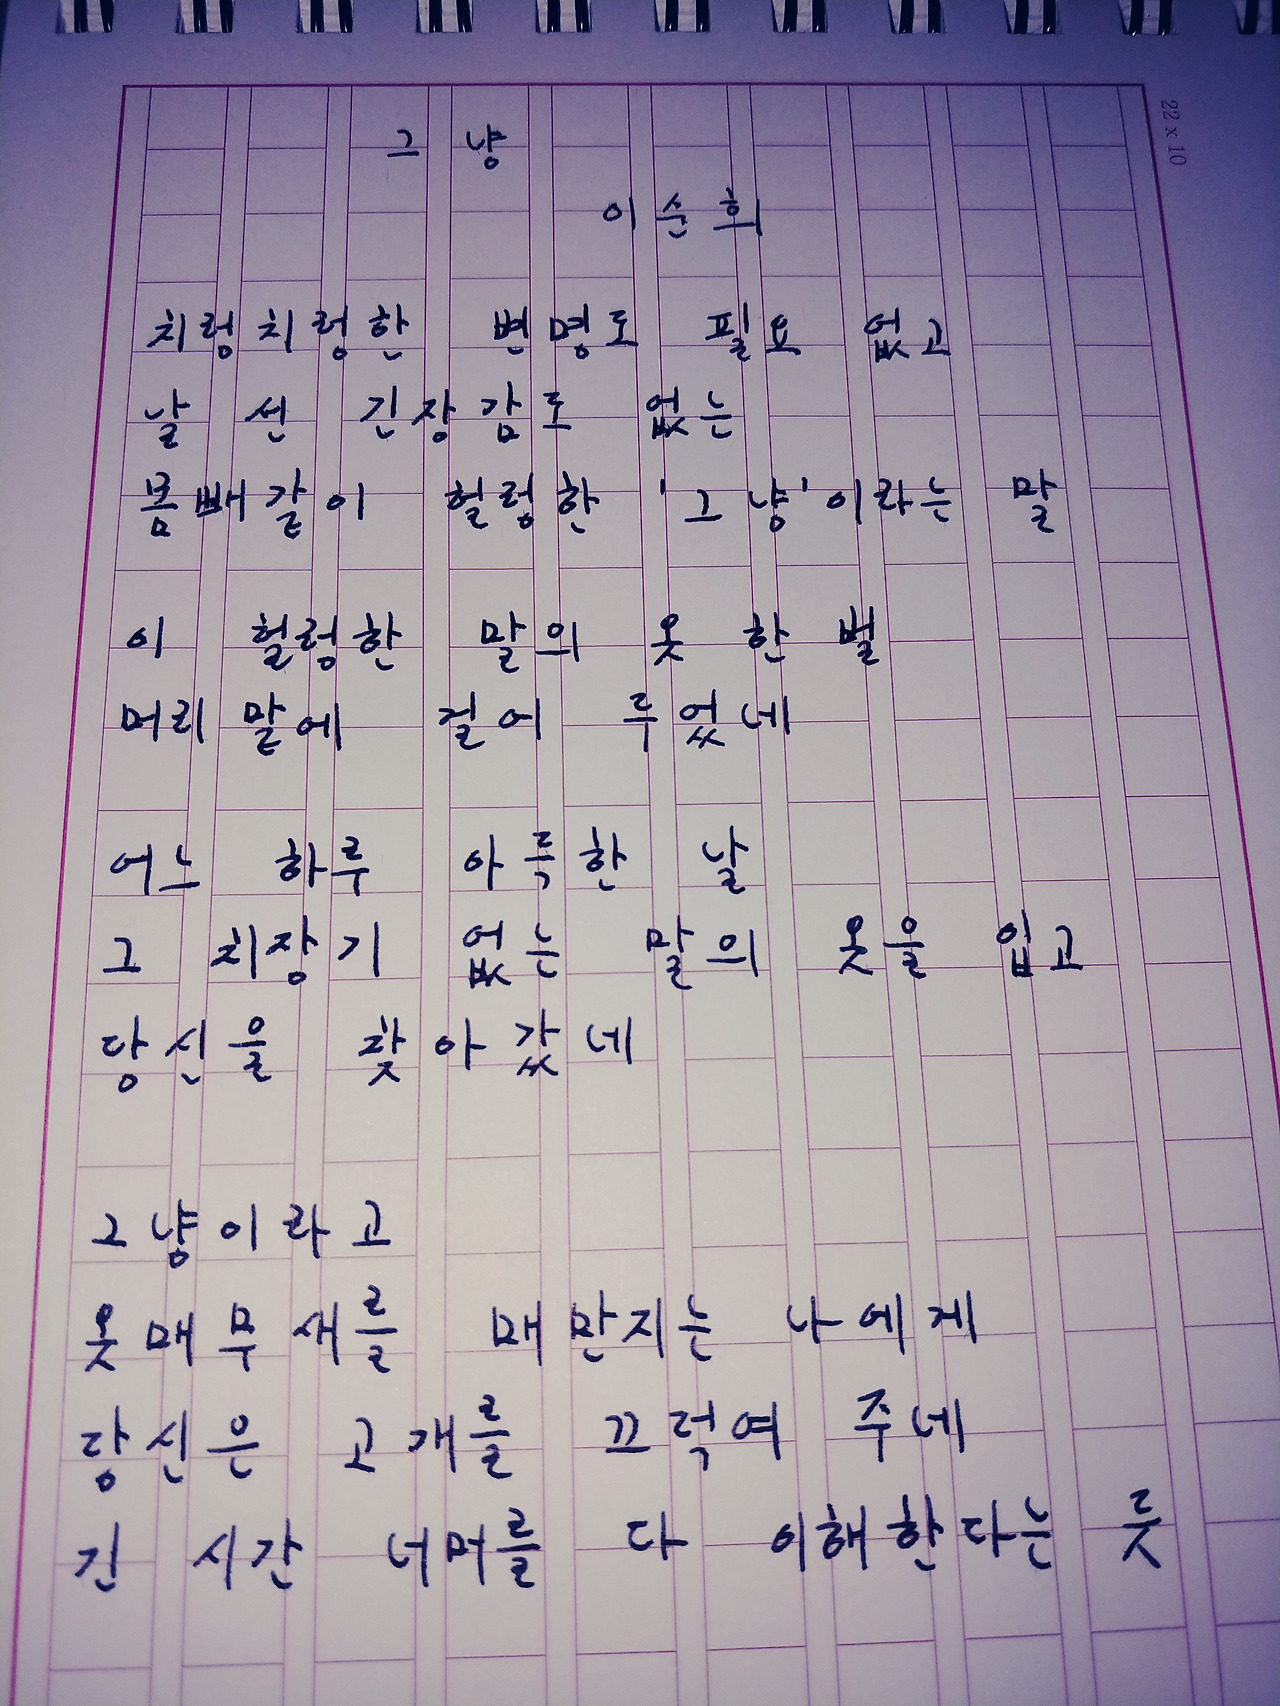 그냥
이순희
치렁치렁한 변명도 필요 없고
날 선 긴장감도 없는
몸빼같이 헐렁한 '그냥'이라는 말
이 헐렁한 말의 옷 한 벌
머리맡에 걸어 두었네
어느 하루 아득한 날
그 치장기 없는 말의 옷을 입고
당신을 찾아갔네
그냥이라고
옷매무새를 매만지는 나에게
당신은 고개를 끄덕여 주네
긴 시간 너머를 다 이해한다는 듯
22 x 10